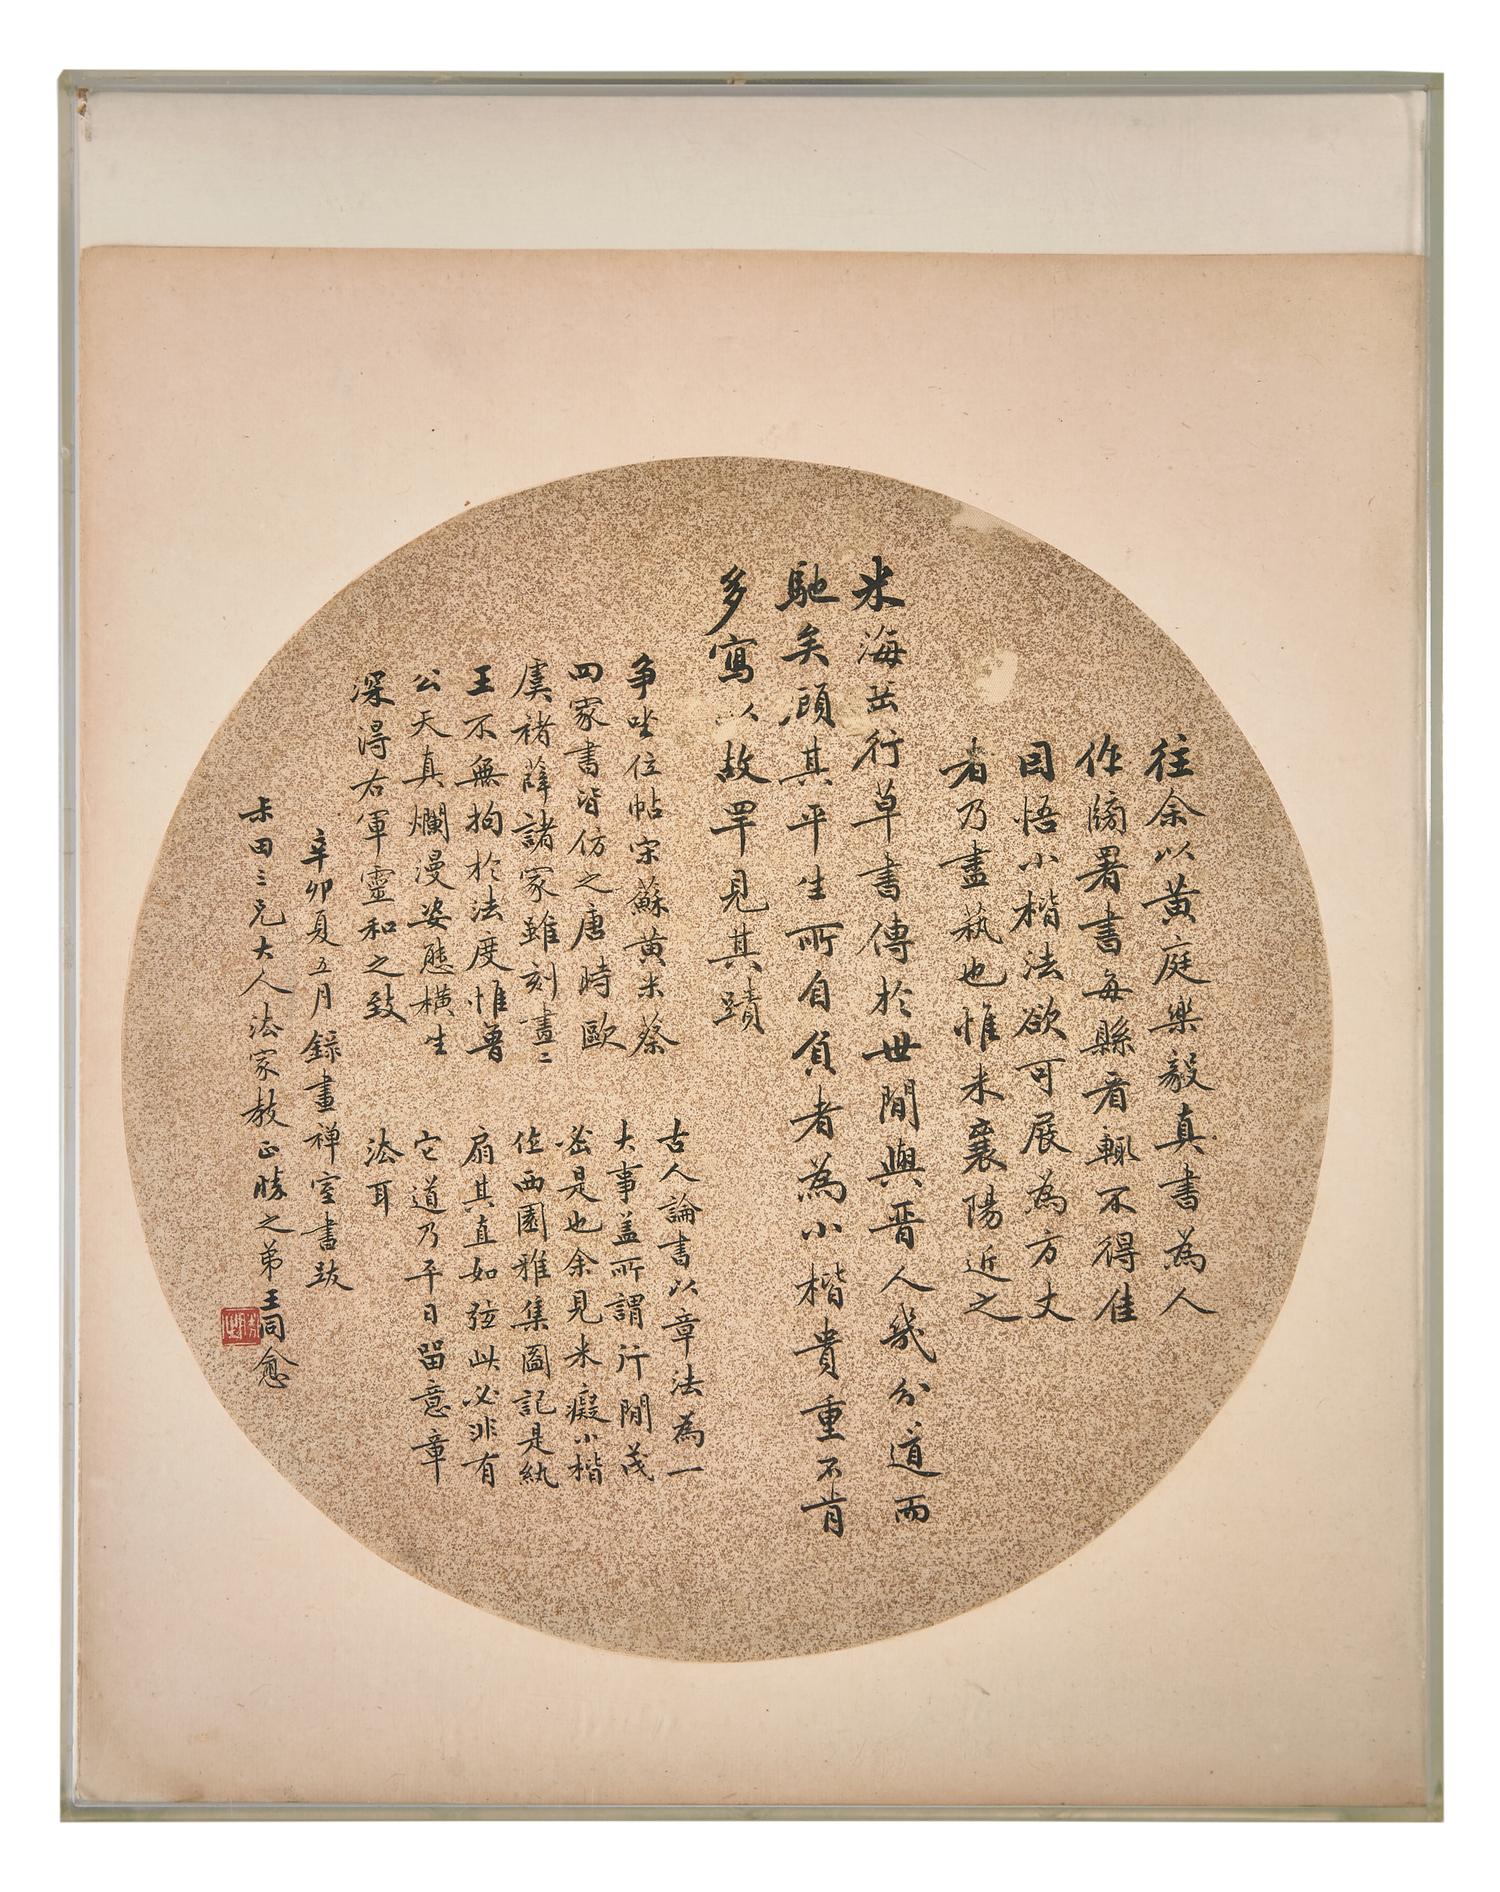 往余以黃庭樂毅真書為人
作牓署書每縣看輒不得佳
因悟小楷法欲可展為方丈
者乃盡萟也惟米襄陽近之
米海岳行草書傳於世間與晋人幾分道而
馳矣顧其平生所自負者為小楷貴重不肯
多寫以故罕見其蹟
爭坐位帖宋蘇黃米蔡
四家書皆仿之唐時歐
虞褚薛諸家雖刻畫二
王不無拘於法度惟魯
公天真爛漫姿態橫生
深得右軍靈和之致
古人論書以章法為一
大事盖所謂行間茂
密是也余見米癡小楷
作西園雅集圖記是紈
扇其直如弦此必非有
它道乃平日留意章
法耳
辛卯夏五月錄畫禪室書跋
尗田三兄大人法家教正勝之弟王同愈
勝之